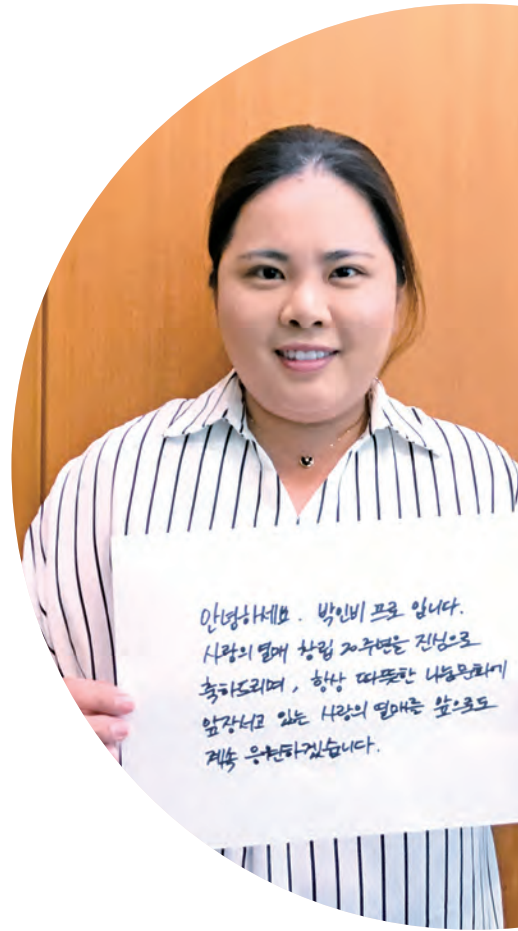 안녕하세요. 박인비 프로 입니다.
사랑의열매 창립 20주년을 진심으로
축하드리며, 항상 따뜻한 나눔문화에
앞장서고 있는 사랑의열매를 앞으로도
계속 응원하겠습니다.